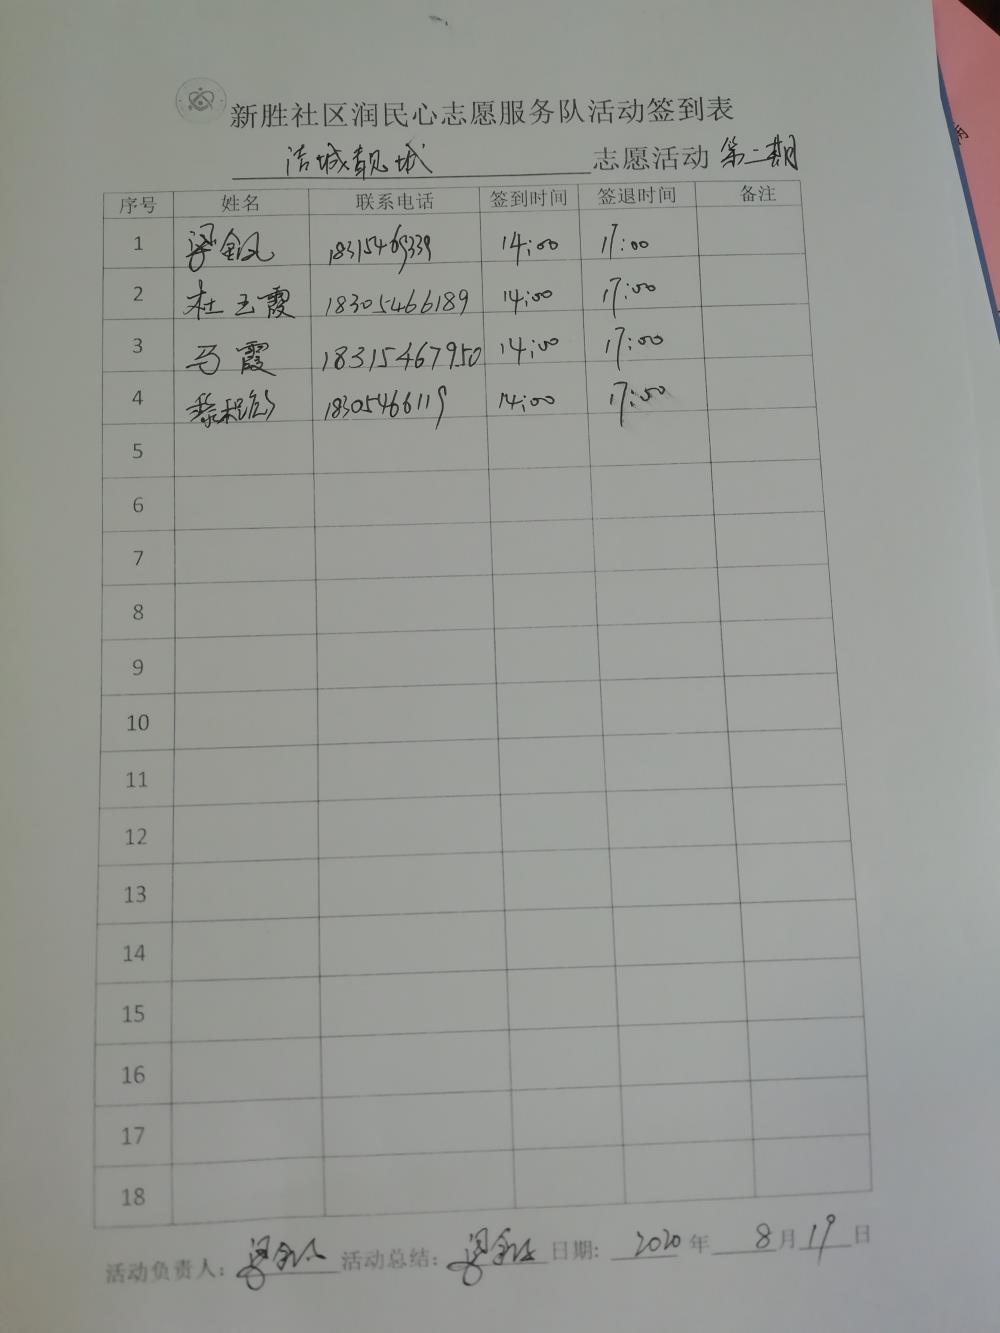 新胜社区润民心志愿服务队活动签到表
洁城靓城 志愿活动 第二期
序号 姓名 联系电话 签到时间 签退时间 备注
1 梁金凤 18315469339 14:00 17:00
2 杜玉霞 18305466189 14:00 17:00
3 马霞 18315467950 14:00 17:00
4 18305466119 14:00 17:00
5
6
7
8
9
10
11
12
13
14
15
16
17
18
活动负责人: 活动总结: 日期: 2020 年 8 月 19 日